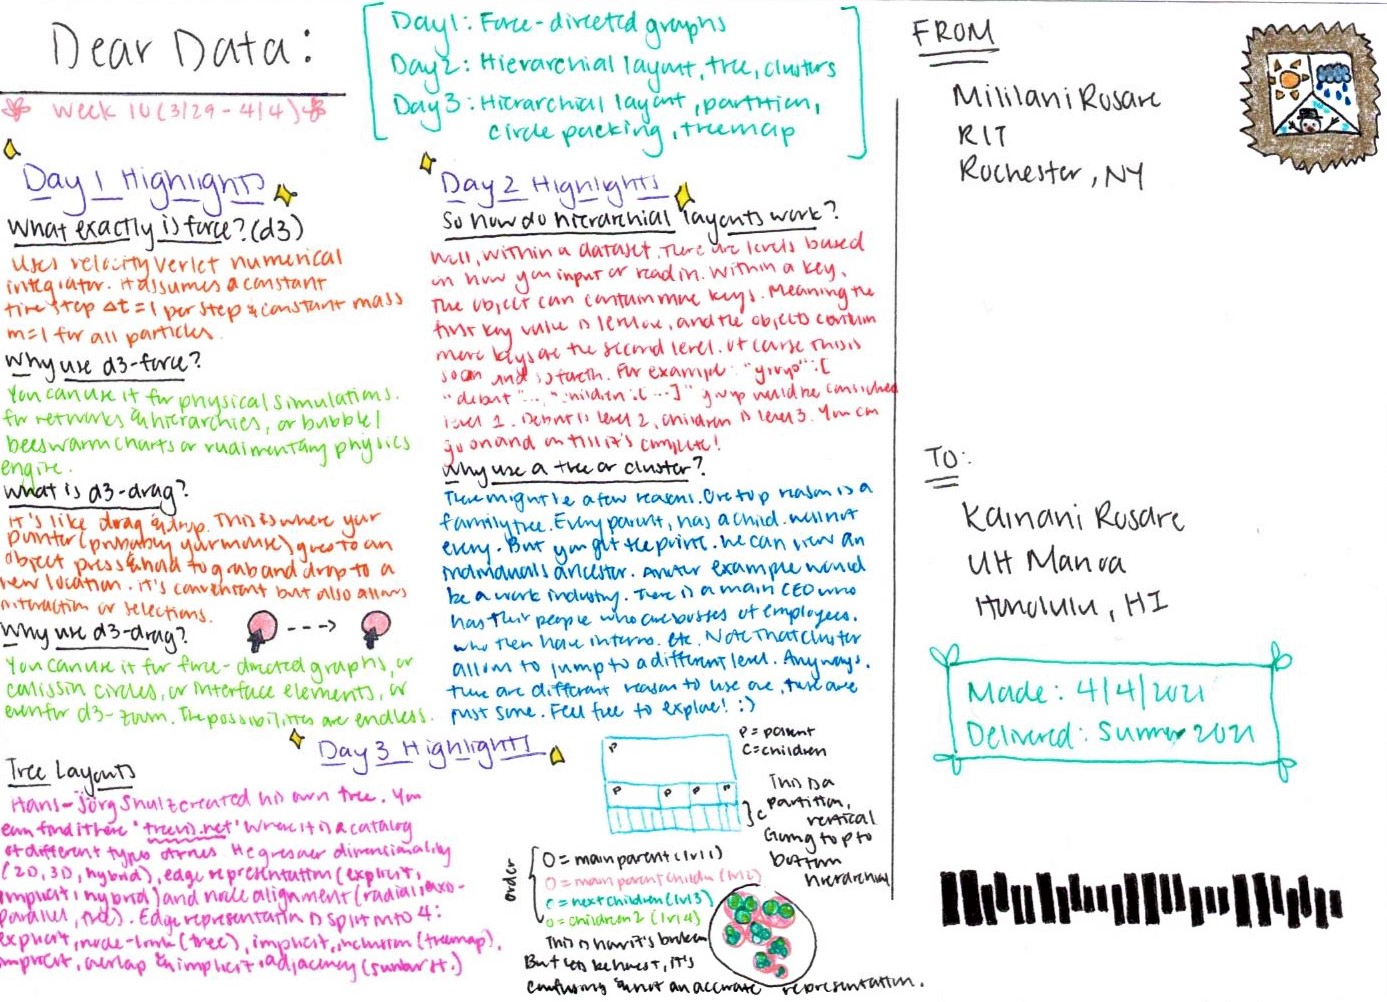 Dear Data:
Week 10 (3/29 - 4/4)
Day 1: Force-directed graphs
Day 2: Hierarchial layout, tree, clusters
Day 3: Hierarchial layout, partition,
circle packing, treemap
Day 1 Highlights
What exactly is force? (d3)
Uses velocity Verlet numerical
integrator. It assumes a constant
time step Δt = 1 per step & constant mass
m=1 for all particles.
Why use d3-force?
You can use it for physical simulations.
for networks & hierarchies, or bubble/
beeswarm charts or rudimentary physics
engine.
What is d3-drag?
It's like drag & drop. This is where your
pointer (probably your mouse) goes to an
object press & hold to grab and drop to a
new location. It's convenient but also allows
interaction or selections.
Why use d3-drag?
You can use it for force-directed graphs, or
collision circles, or interface elements, or
even for d3-zoom. The possibilities are endless.
Day 2 Highlights
So how do hierarchial layouts work?
Well, within a dataset. There are levels based
on how you input or read in. Within a key,
the object can contain more keys. Meaning the
first key value is level one, and the objects contain
more keys are the second level. Of course this is
so on and so forth. For example: "group": [
"debut"..., "children": [...]" group would be considered
level 1. Debut is level 2, children is level 3. You can
go on and on till it's complete!
Why use a tree or cluster?
There might be a few reasons. One top reason is a
family tree. Every parent, has a child. well not
every. But you get the point. We can view an
individuals ancestor. Another example would
be a work industry. There is a main CEO who
has their people who are bosses of employees.
who then have interns. etc. Note that cluster
allow to jump to a different level. Anyways.
there are different reason to use one, these are
just some. Feel free to explore! :)
Day 3 Highlights
Tree Layouts
Hans-Jörg Shulz created his own tree. You
can find it here "treevis.net" Where it is a catalog
of different types of trees. He goes over dimensionality
(2D, 3D, hybrid), edge representation (explicit,
implicit, hybrid) and node alignment (radial, axo-
parallel, free). Edge representation is split into 4:
explicit, node-link (tree), implicit, inclusion (treemap),
implicit, overlap & implicit, adjacency (sunburst.)
P
P P P P
C
P = parent
C = children
This is a
partition,
vertical
Going top to
bottom
hierarchial
order
O = main parent (lvl 1)
O = main parent children (lvl 2)
c = next children (lvl 3)
o = children 2 (lvl 4)
This is how it's broken
But lets be honest, it's
confusing & not an accurate representation.
FROM
Mililani Rosare
RIT
Rochester, NY
TO:
Kainani Rosare
UH Manoa
Honolulu, HI
Made: 4/4/2021
Delivered: Summer 2021